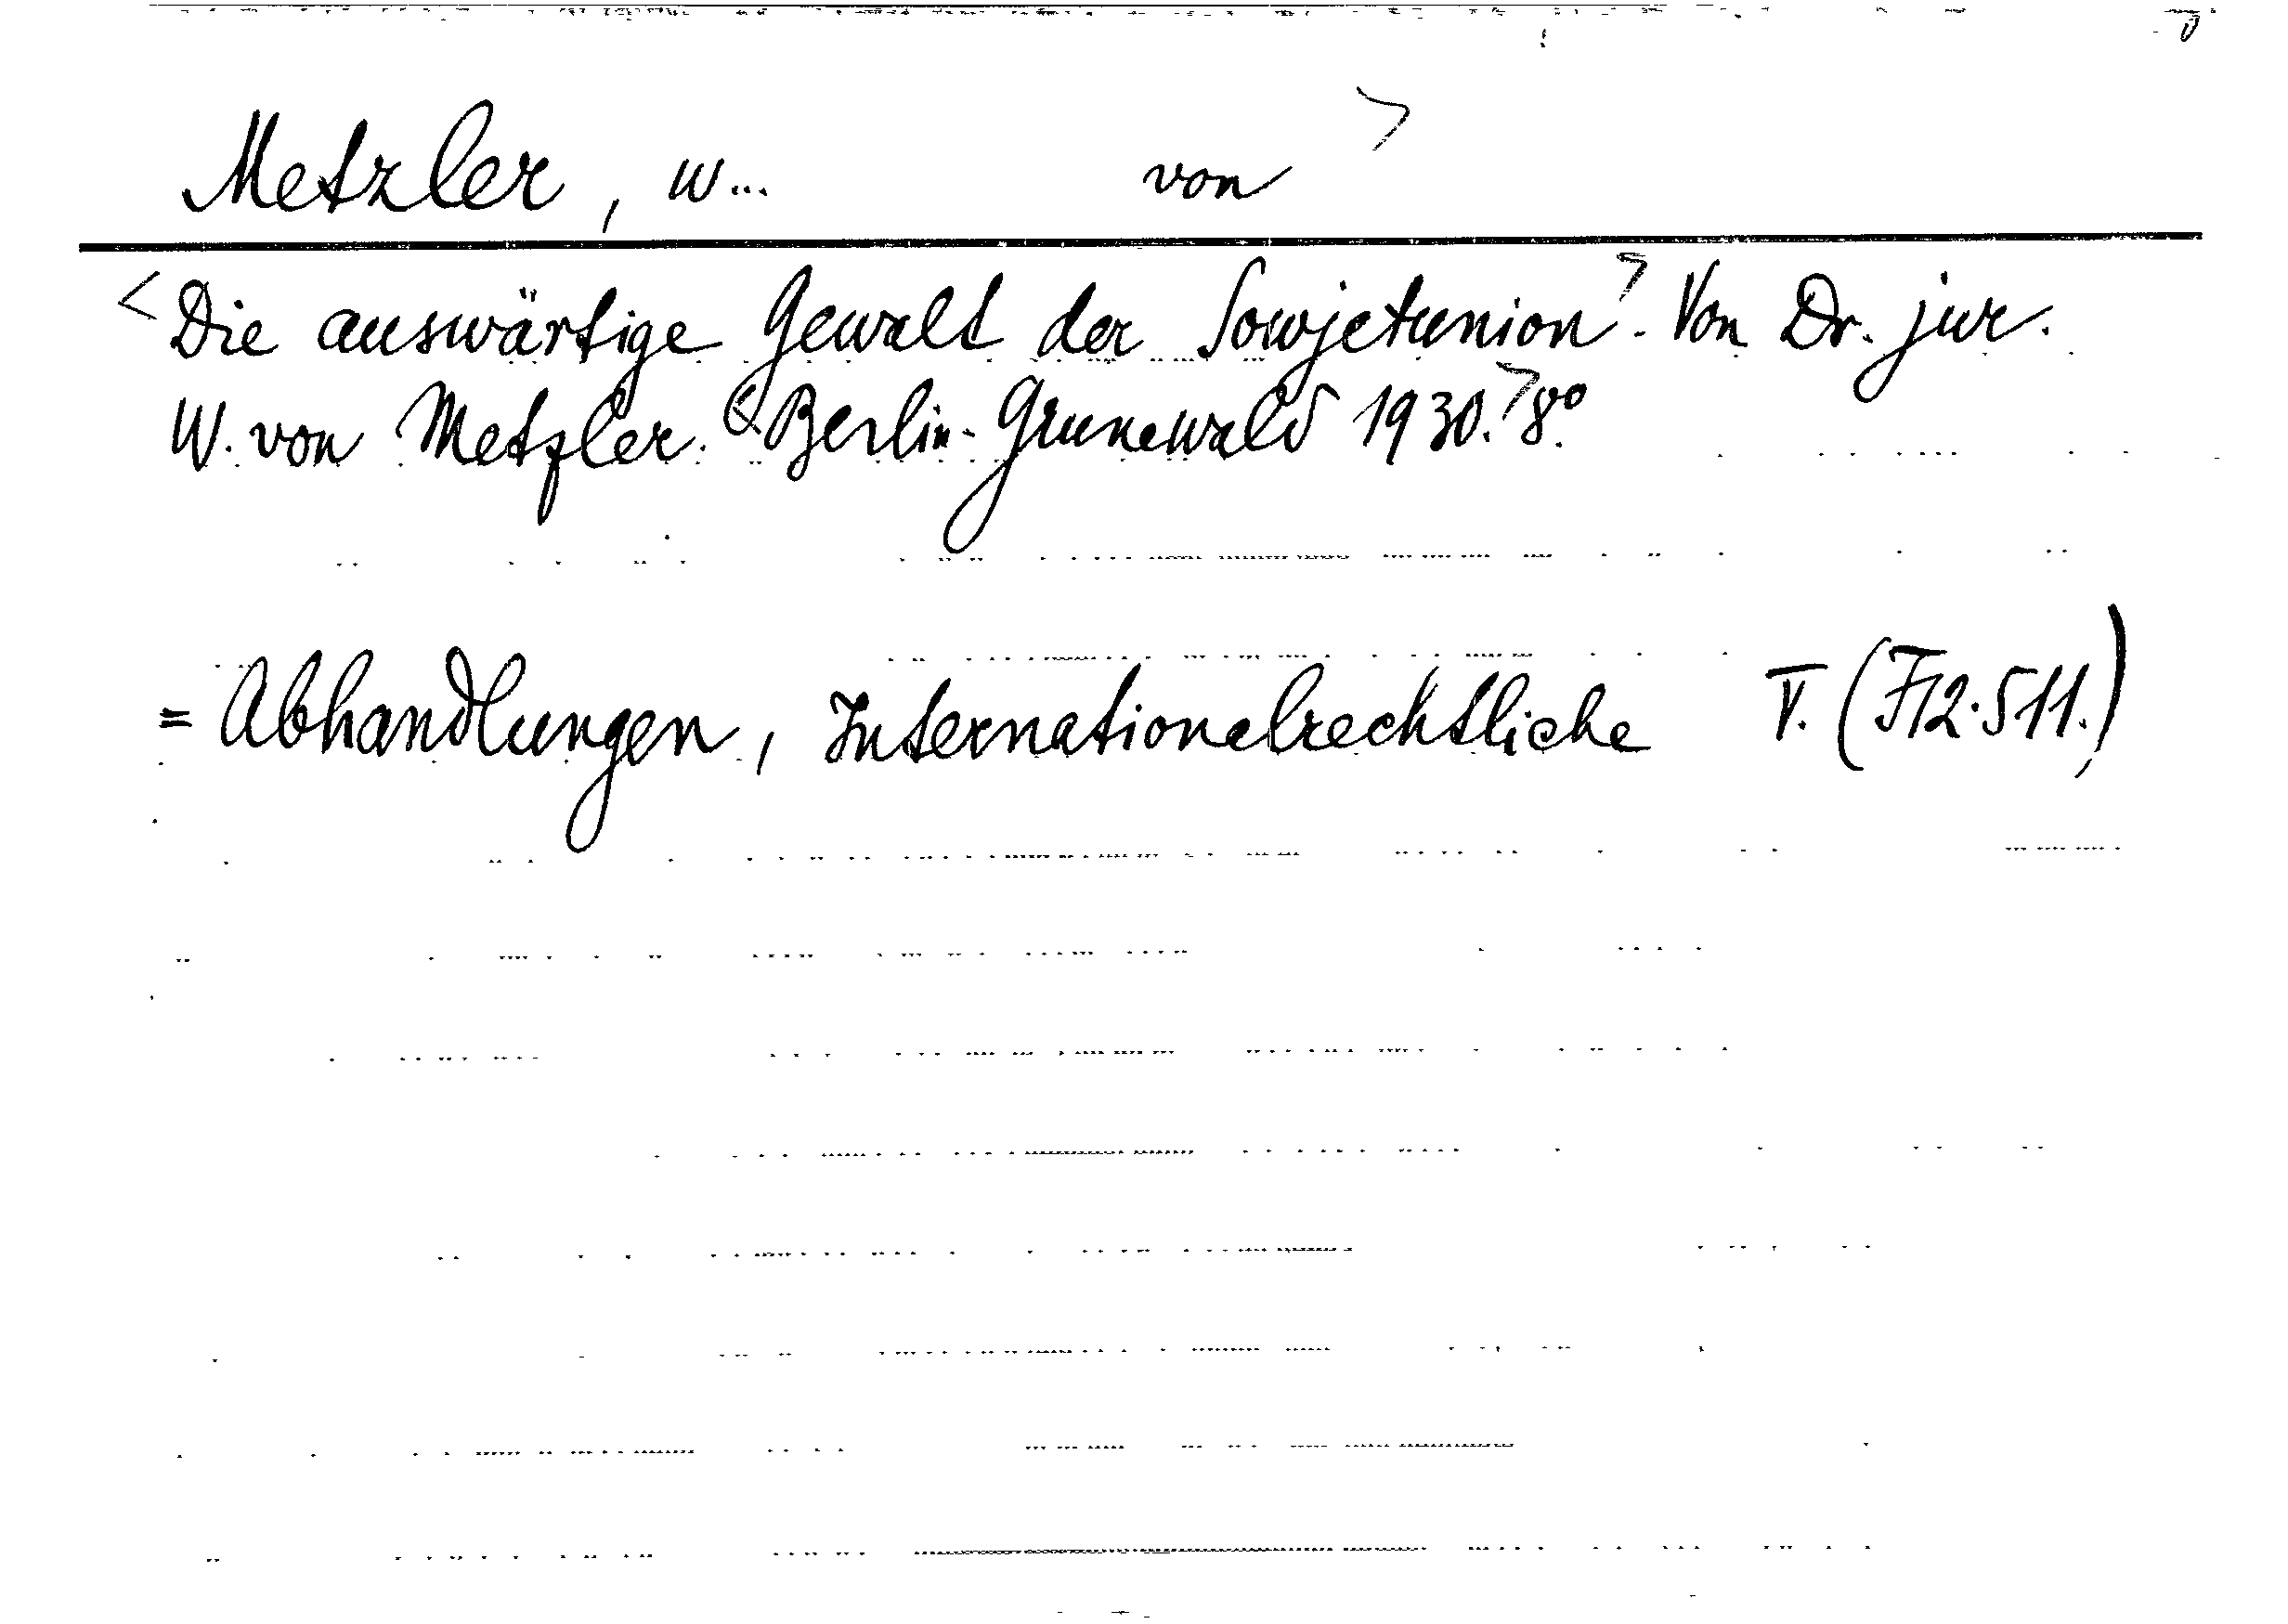 Metzler, W... von >
<Die auswärtige Gewalt der Sowjetunion>. Von Dr. jur.
W. von Metzler. <Berlin-Grunewald 1930.> 8°.
= Abhandlungen, Internationalrechtliche V. (F12.511.)